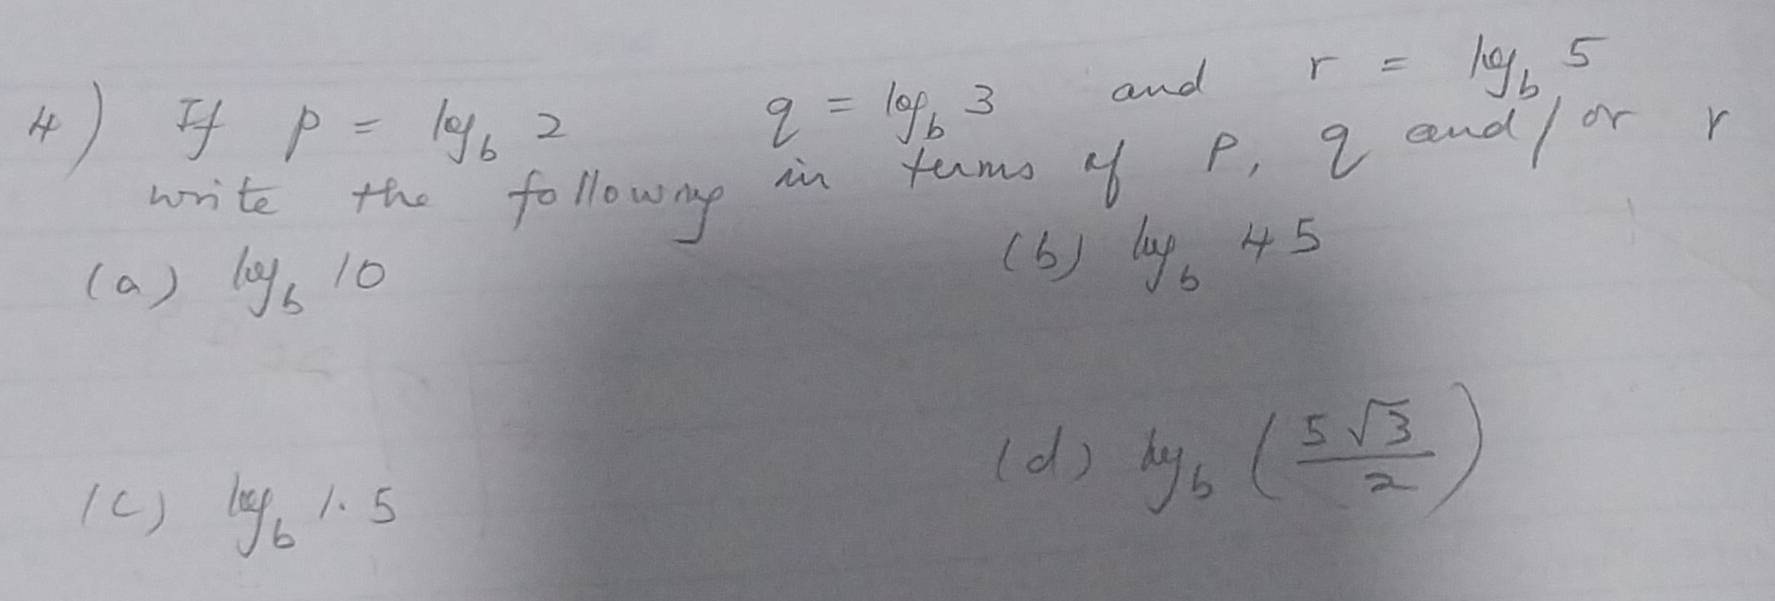 4) If p = log_b 2 q = log_b 3 and r = log_b 5
write the following in terms of p, q and/or r
(a) log_b 10 (b) log_b 45
(c) log_b 1.5 (d) log_b (5√3/2)